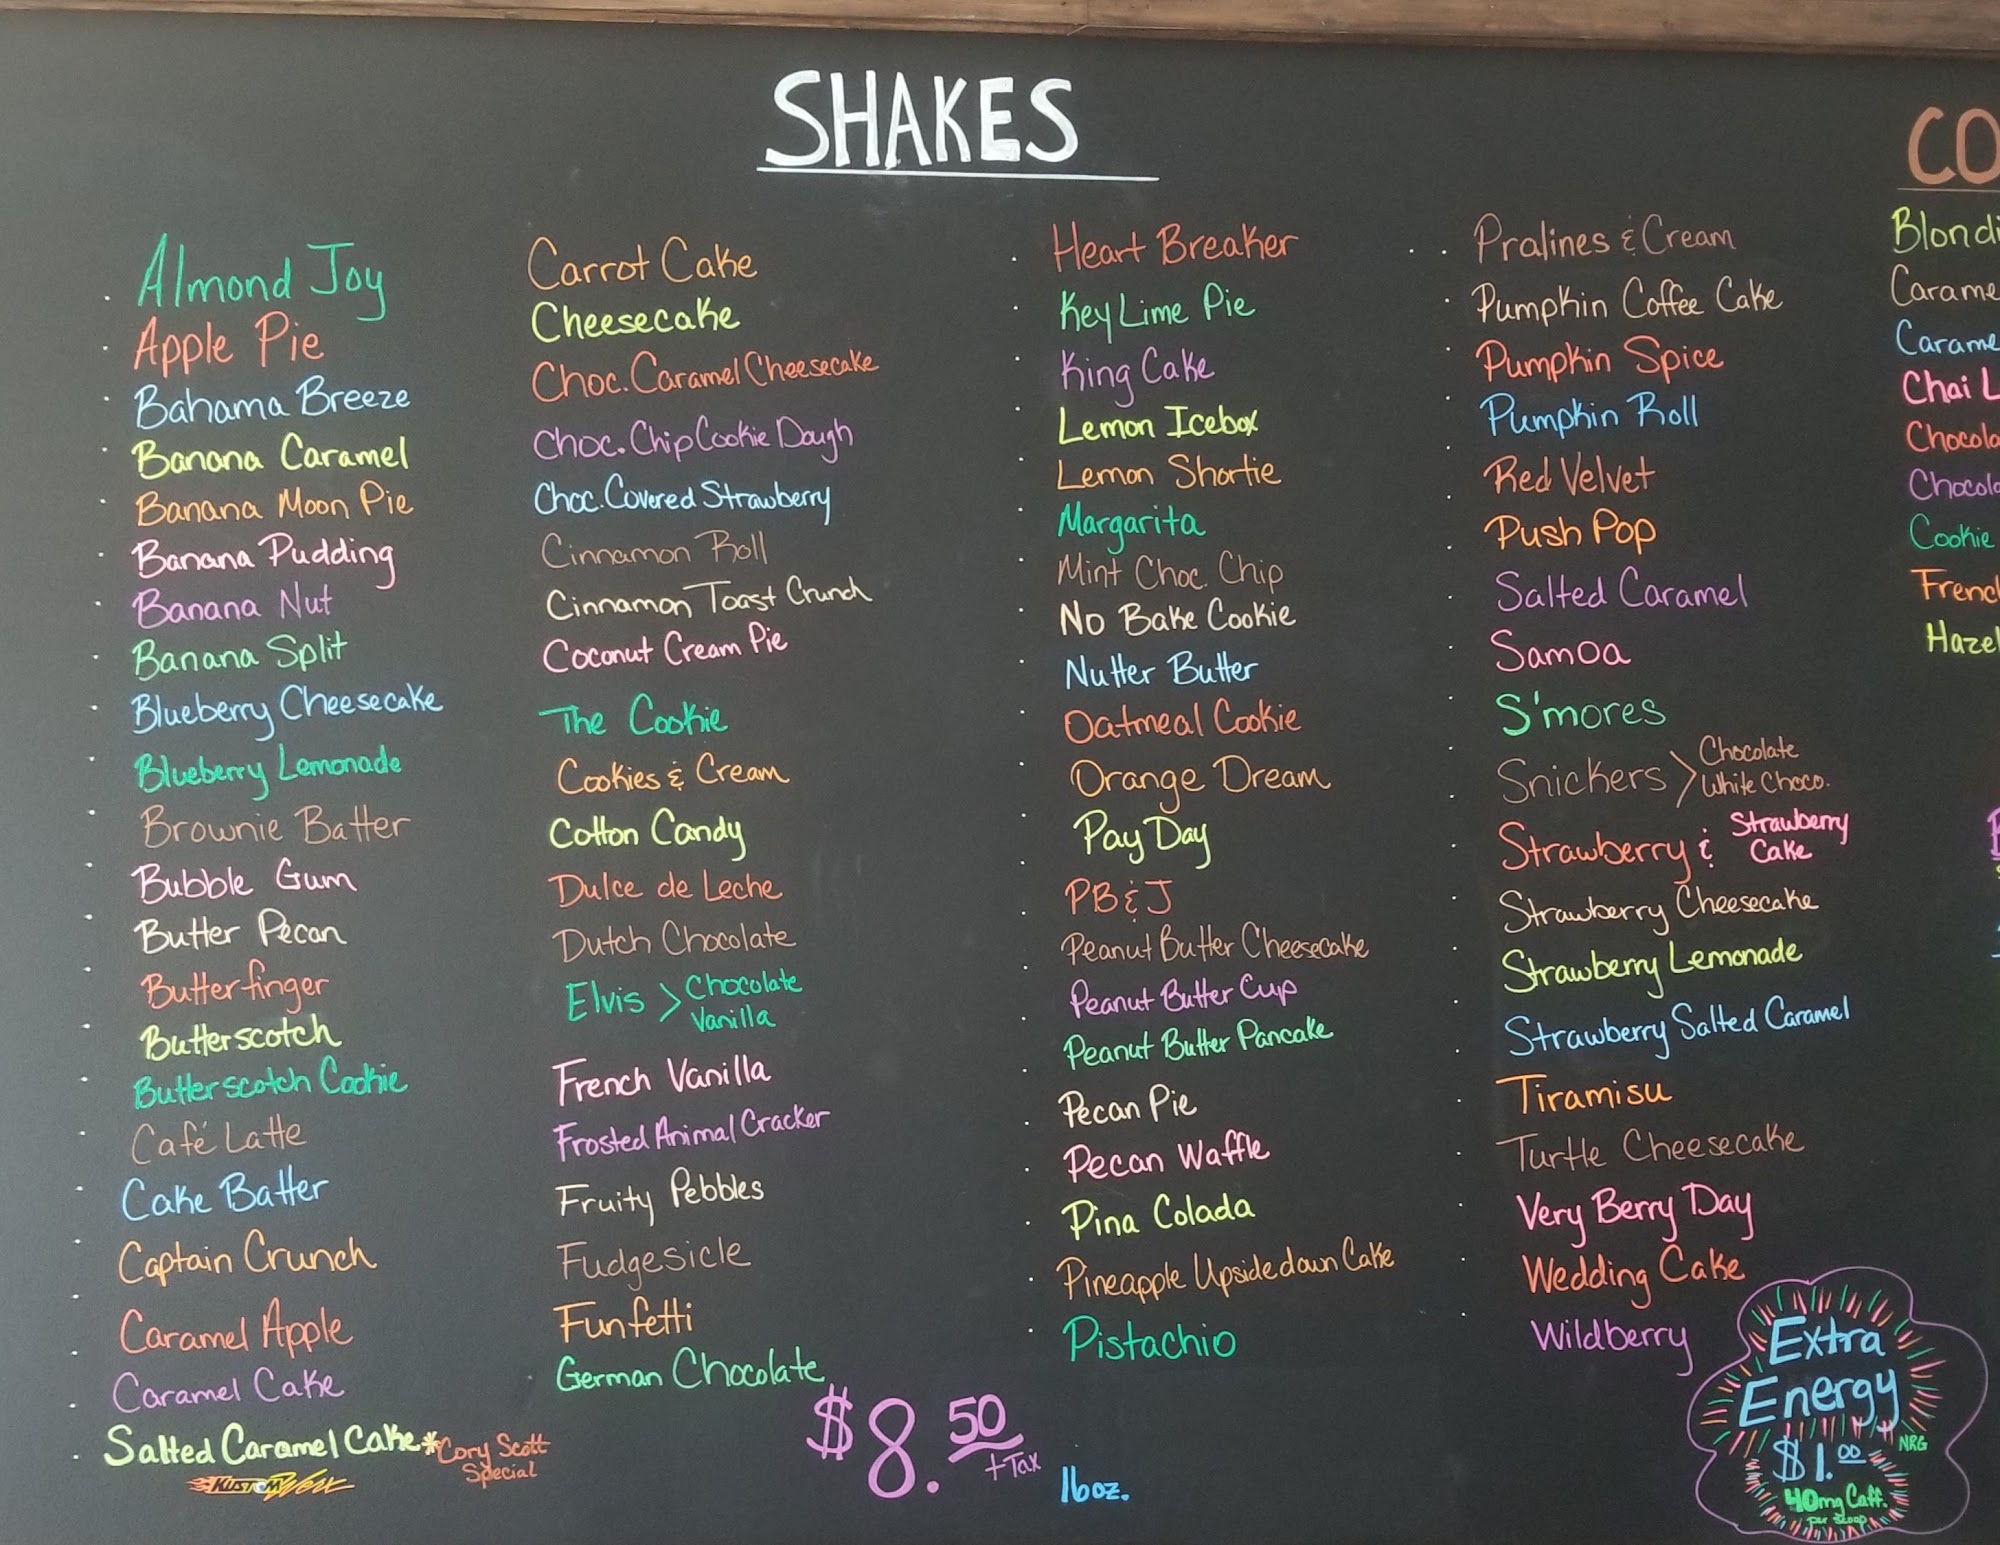 SHAKES
Almond Joy
Apple Pie
Bahama Breeze
Banana Caramel
Banana Moon Pie
Banana Pudding
Banana Nut
Banana Split
Blueberry Cheesecake
Blueberry Lemonade
Brownie Batter
Bubble Gum
Butter Pecan
Butterfinger
Butterscotch
Butterscotch Cookie
Café Latte
Cake Batter
Captain Crunch
Caramel Apple
Caramel Cake
Salted Caramel Cake *Cory Scott
Special
Carrot Cake
Cheesecake
Choc. Caramel Cheesecake
Choc. Chip Cookie Dough
Choc. Covered Strawberry
Cinnamon Roll
Cinnamon Toast Crunch
Coconut Cream Pie
The Cookie
Cookies & Cream
Cotton Candy
Dulce de Leche
Dutch Chocolate
Elvis > Chocolate
Vanilla
French Vanilla
Frosted Animal Cracker
Fruity Pebbles
Fudgesicle
Funfetti
German Chocolate
$8.50
+Tax
16oz.
Heart Breaker
Key Lime Pie
King Cake
Lemon Icebox
Lemon Shortie
Margarita
Mint Choc. Chip
No Bake Cookie
Nutter Butter
Oatmeal Cookie
Orange Dream
Pay Day
PB & J
Peanut Butter Cheesecake
Peanut Butter Cup
Peanut Butter Pancake
Pecan Pie
Pecan Waffle
Pina Colada
Pineapple Upsidedown Cake
Pistachio
Pralines & Cream
Pumpkin Coffee Cake
Pumpkin Spice
Pumpkin Roll
Red Velvet
Push Pop
Salted Caramel
Samoa
S'mores
Snickers > Chocolate
White Choco.
Strawberry & Strawberry
Cake
Strawberry Cheesecake
Strawberry Lemonade
Strawberry Salted Caramel
Tiramisu
Turtle Cheesecake
Very Berry Day
Wedding Cake
Wildberry
Extra
Energy
NRG
$1.00
40mg Caff.
per scoop
CO
Blondi
Carame
Carame
Chai L
Chocola
Chocola
Cookie
French
Hazel